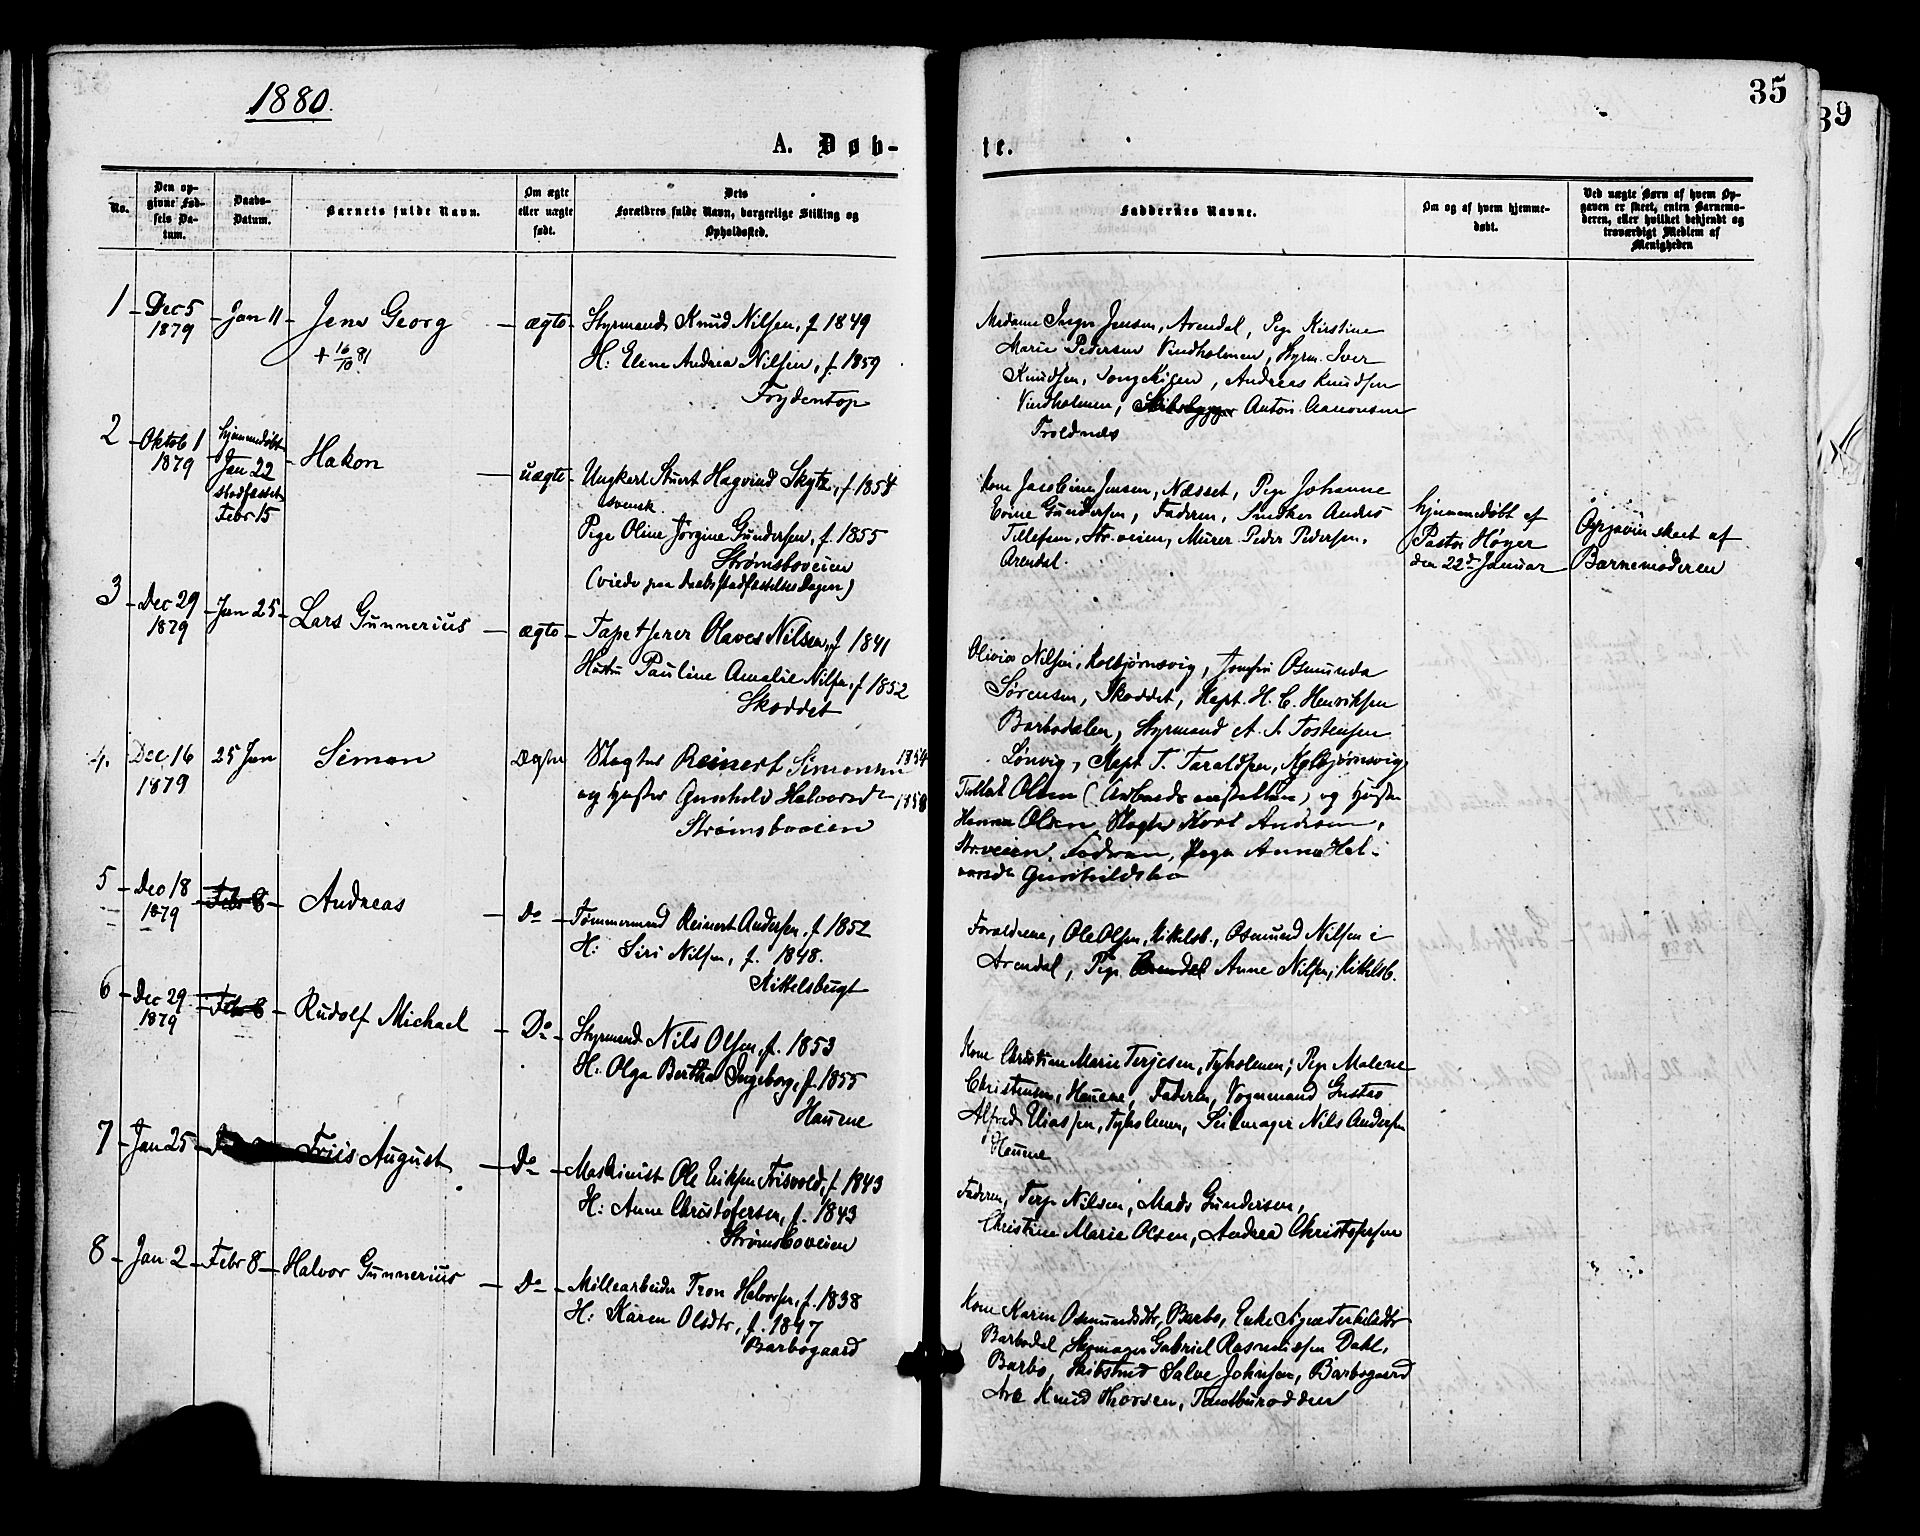 1880.
35
39
A. Døb-
te.
No.
Den op-
givne Fød-
sels Da-
tum.
Daabs-
Datum.
Barnets fulde Navn.
Om ægte
eller uægte
født.
Dets
Forældres fulde Navn, borgerlige Stilling og
Opholdssted.
Faddernes Navne.
Om og af hvem hjemme-
døbt.
Ved uægte Børn af hvem Op-
gaven er skeet, enten Barnemo-
deren, eller hvilket bekjendt og
troværdigt Medlem af
Menigheden
1 Dec 5 1879 Jan 11 Jens Georg
+ 16/10 81
ægte
Styrmand Knud Nilsen, f 1849
H: Elene Andrea Nilsen, f. 1859
Frydentop
Madame Inger Jensen, Arendal, Pige Kirstine
Marie Pedersen Vindholmen, Styrm. Iver
Knudsen, Andreas Knudsen
Vindholmen, Skibsbygger Anton Aanonsen
Troldnæs
2 Oktob 1 1879
hjemmedøbt
Jan 22
stadfæstet
Febr 15
Hakon
uægte
Ungkarl Stuert Hagvind Skytz, f 1854
svensk.
Pige Oline Jørgine Gundersen, f. 1855
Strømsboveien
(viede paa Daabsstadfæstelses Dagen)
Kone Jacobine Jensen, Næsset, Pige Johanne
Gundersen, Faderen, Snedker Anders
Tellefsen, Str.veien, Murer Peder Pedersen,
Arendal.
hjemmedøbt af
Pastor Høyer
den 22de Januar
Opgaven skeet af
Barnemoderen
3 Dec 29 1879 Jan 25 Lars Gunnerius
ægte
Tapetserer Olaves Nilsen, f 1841
Hustru Pauline Amalie Nilsen, f 1852
Skoddet
Olivia Nilsen, Kolbjørnsvig, Josefin Osmunda
Sørensen, Skoddet, Kapt. H. C. Henriksen
Barbodalen, Styrmand A. S. Tostensen
Lønvig, Kapt. T. Taraldsen, Kolbjørnsvig
4. Dec 16 1879 25 Jan Simon
Ægte
Slagter Reinert Simonsen 1854
og Hustru Gunhild Halvorsdr 1858
Strømsboveien
Tellak Olsen (Arbeidsanstalten) og Hustru
Hanna Olsen, Slagter Andersen,
Str.veien, Faderen, Pige Anna Hal-
vorsdr
5 Dec 18 1879 Febr 8 Andreas
Do
Tømmermand Reinert Andersen, f 1852
H: Siri Nilsen, f. 1848.
Kittelsbugt
Forældrene, Ole Olsen, Kittelsb., Osmund Nilsen i
Arendal, Pige Arendal Anne Nilsen, Kittelsb.
6 Dec 29 1879 Febr 8 Rudolf Michael
Do
Styrmand Nils Olsen, f. 1853
H: Olga Bertha Ingeborg, f. 1855
Havene
Kone Christiane Marie Terjesen, Tyholmen; Pige Malene
Christensen, Havene, Faderen, Vognmand Gustav
Alfred Eliassen, Tyholmen, Seilmager Nils Andersen
Havene
7 Jan 25 Friis August
Do
Maskinist Ole Eriksen Frisvold, f 1843
H: Anne Christofersen, f. 1843
Strømsboveien
Faderen, Terje Nilsen, Mads Gundersen,
Christine Marie Olsen, Andrea Christofersen
8 Jan 2 Febr 8 Halvor Gunnerius
Do
Møllearbeider Tron Halvorsen, f. 1838
H: Karen Olsdtr, f. 1847
Barbogaard
Kone Karen Osmundsdtr, Barbo, Enke
Barbodal, Skomager Gabriel Rasmussen Dahl,
Barbo, Skibstmd Salve Johnsen, Barbogaard
Arb Knud Thorsen,